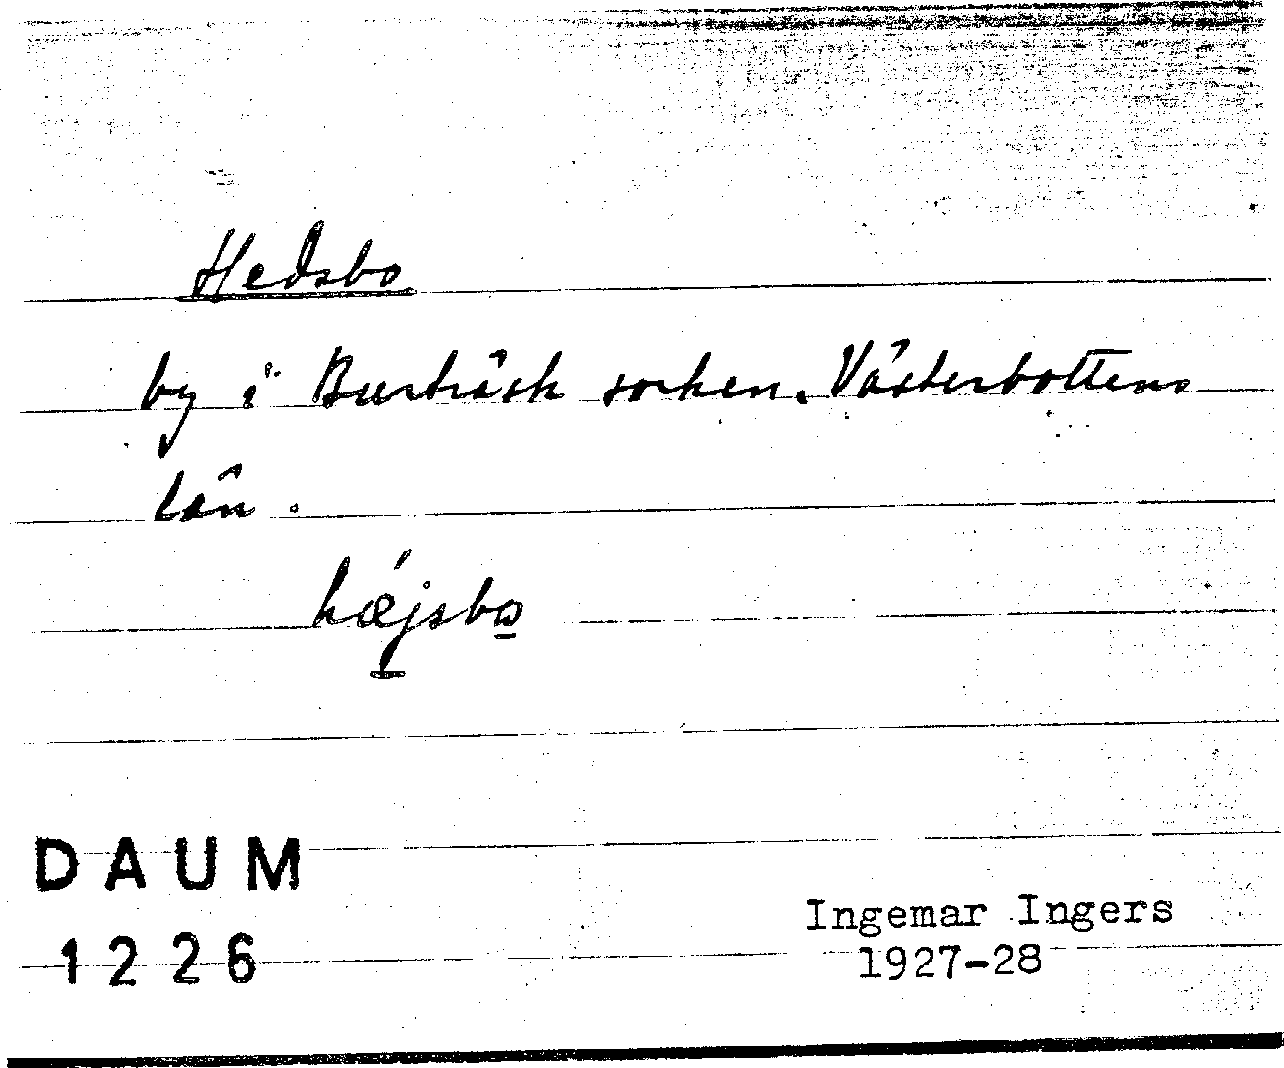 Hedsbo
by i Burträsk socken, Västerbottens
län.
hǽjsbo̲
DAUM
1226
Ingemar Ingers
1927-28